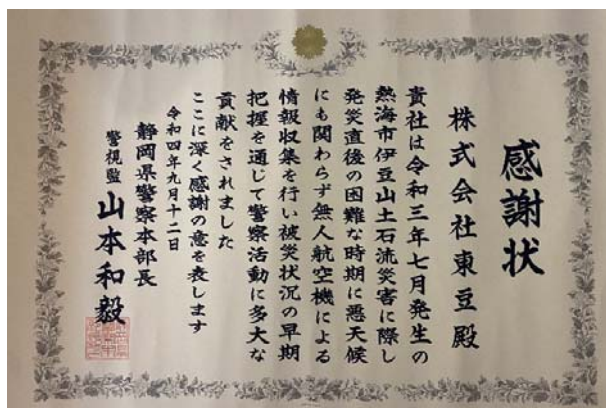 感謝状
株式会社東豆殿
貴社は令和三年七月発生の
熱海市伊豆山土石流災害に際し
発災直後の困難な時期に悪天候
にも関わらず無人航空機による
情報収集を行い被災状況の早期
把握を通じて警察活動に多大な
貢献をされました
ここに深く感謝の意を表します
令和四年九月十二日
静岡県警察本部長
警視監 山本和毅